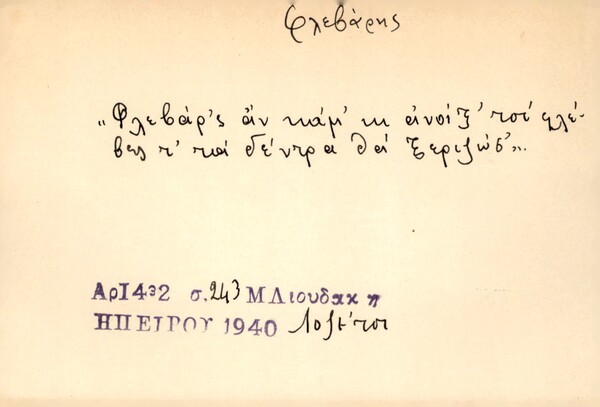 Φλεβάρης
"Φλεβάρ'ς ἂν κάμ' κι ἀνοίξ' τσί φλέ-
βες τ' τά δέντρα θά ξεριζώσ'".
Αρ1432 σ.243 Μ Λιουδακη
ΗΠΕΙΡΟΥ 1940 Λοζέτσι